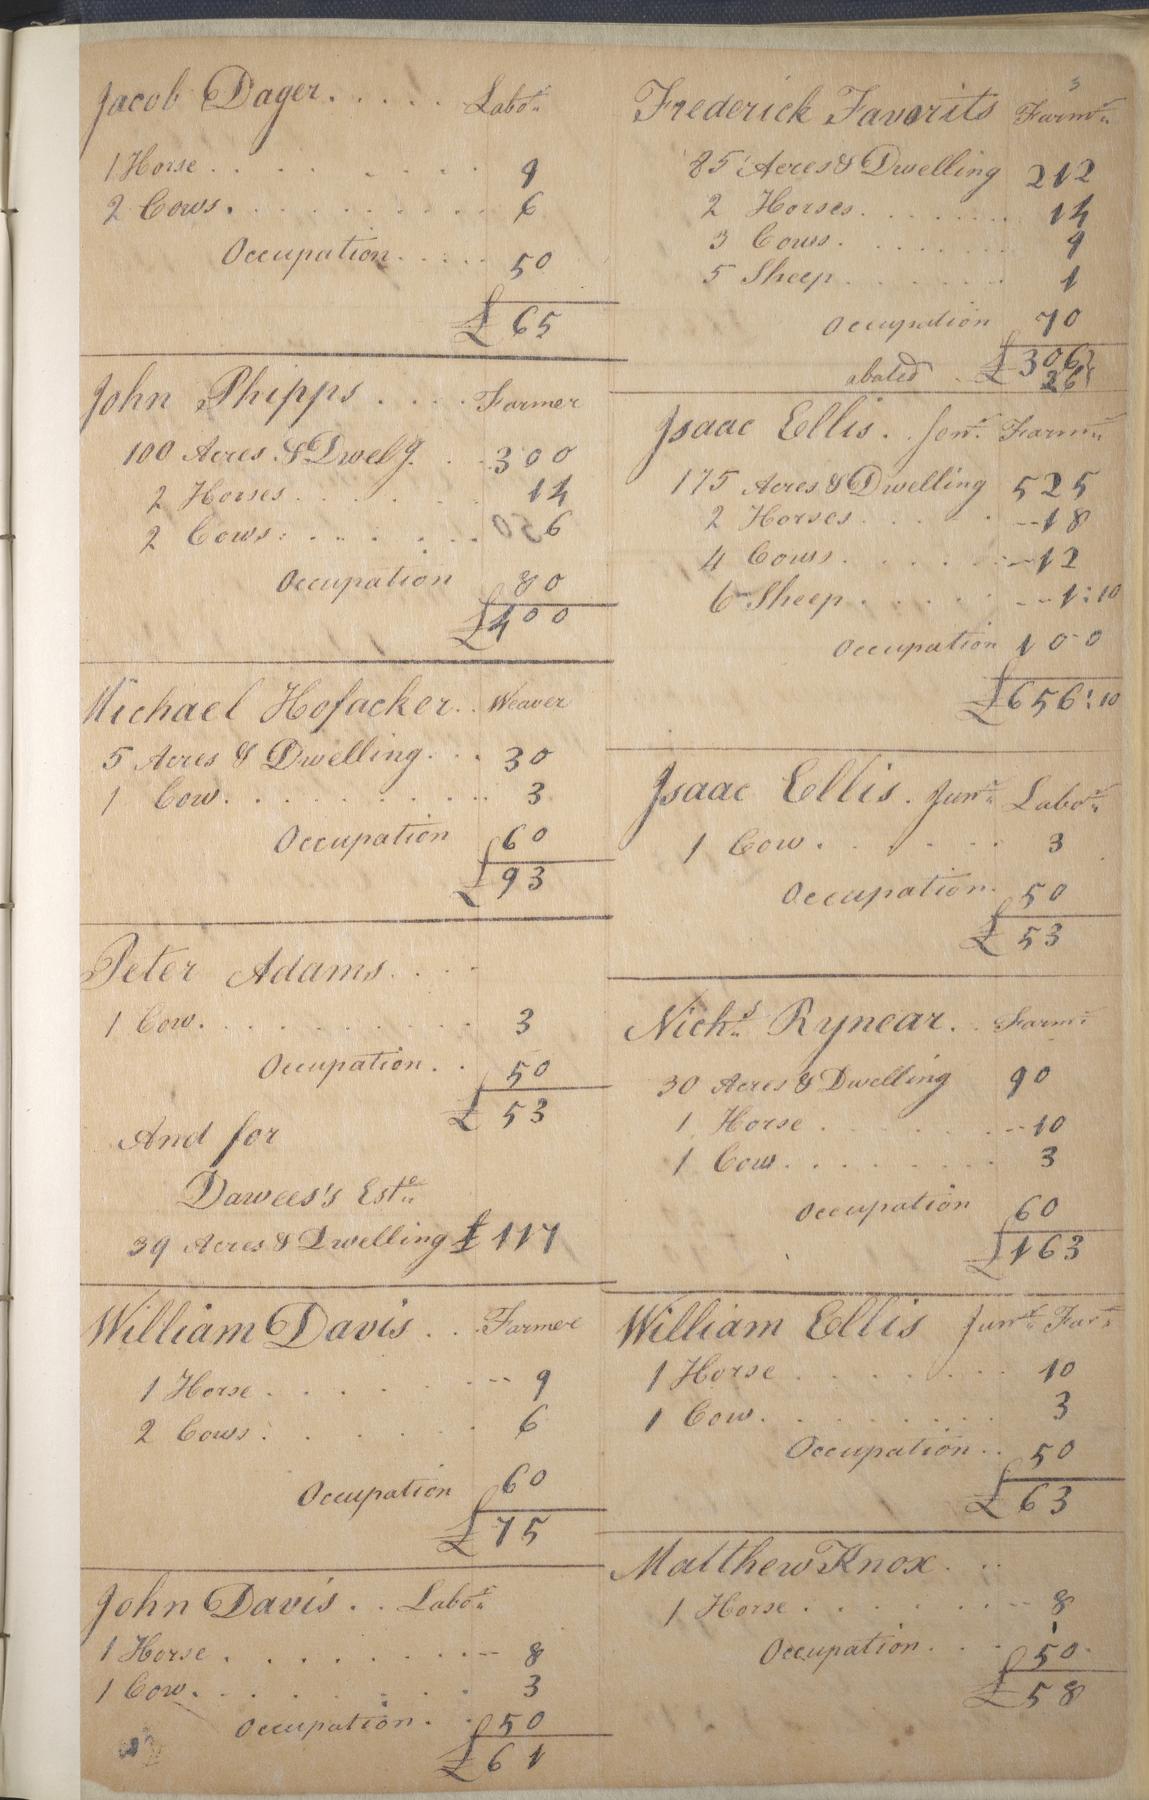 Jacob Dager . . . . . Labo.r
1 Horse . . . . . . . . . 9
2 Cows . . . . . . . . . 6
Occupation . . . . . 50
£ 65
John Phipps . . . . Farmer
100 Acres & Dwel.g . . 300
2 Horses . . . . . . 14
2 Cows . . . . . . 6
Occupation 80
£400
Michael Hofacker . . Weaver
5 Acres & Dwelling . . . 30
1 Cow . . . . . . . . . . 3
Occupation 60
£ 93
Peter Adams . . . .
1 Cow . . . . . . . . . . 3
Occupation . . 50
£ 53
And for
Dawees's Est.e
39 Acres & Dwelling £ 117
William Davis . . . Farmer
1 Horse . . . . . . . 9
2 Cows . . . . . . 6
Occupation 60
£ 75
John Davis . . . Labo.r
1 Horse . . . . . . . . 8
1 Cow . . . . . . . 3
Occupation . . 50
£ 61
3
Frederick Favorits Farm.r
85 Acres & Dwelling 212
2 Horses . . . . . . . 14
3 Cows . . . . . . . 9
5 Sheep . . . . . . . 1
Occupation 70
£ 306
abated . 26
Isaac Ellis . . Sen.r Farm.r
175 Acres & Dwelling 525
2 Horses . . . . . 18
4 Cows . . . . . . 12
6 Sheep . . . . . 1:10
Occupation 100
£656:10
Isaac Ellis . Jun.r Labo.r
1 Cow . . . . . . 3
Occupation . 50
£ 53
Nich.s Rynear . . Farm.r
30 Acres & Dwelling 90
1 Horse . . . . . . . 10
1 Cow . . . . . . . . 3
Occupation 60
£163
William Ellis Jun.r Far.r
1 Horse . . . . . . . 10
1 Cow . . . . . . . . 3
Occupation . . 50
£ 63
Matthew Knox . . .
1 Horse . . . . . . . 8
Occupation . . . 50
£ 58